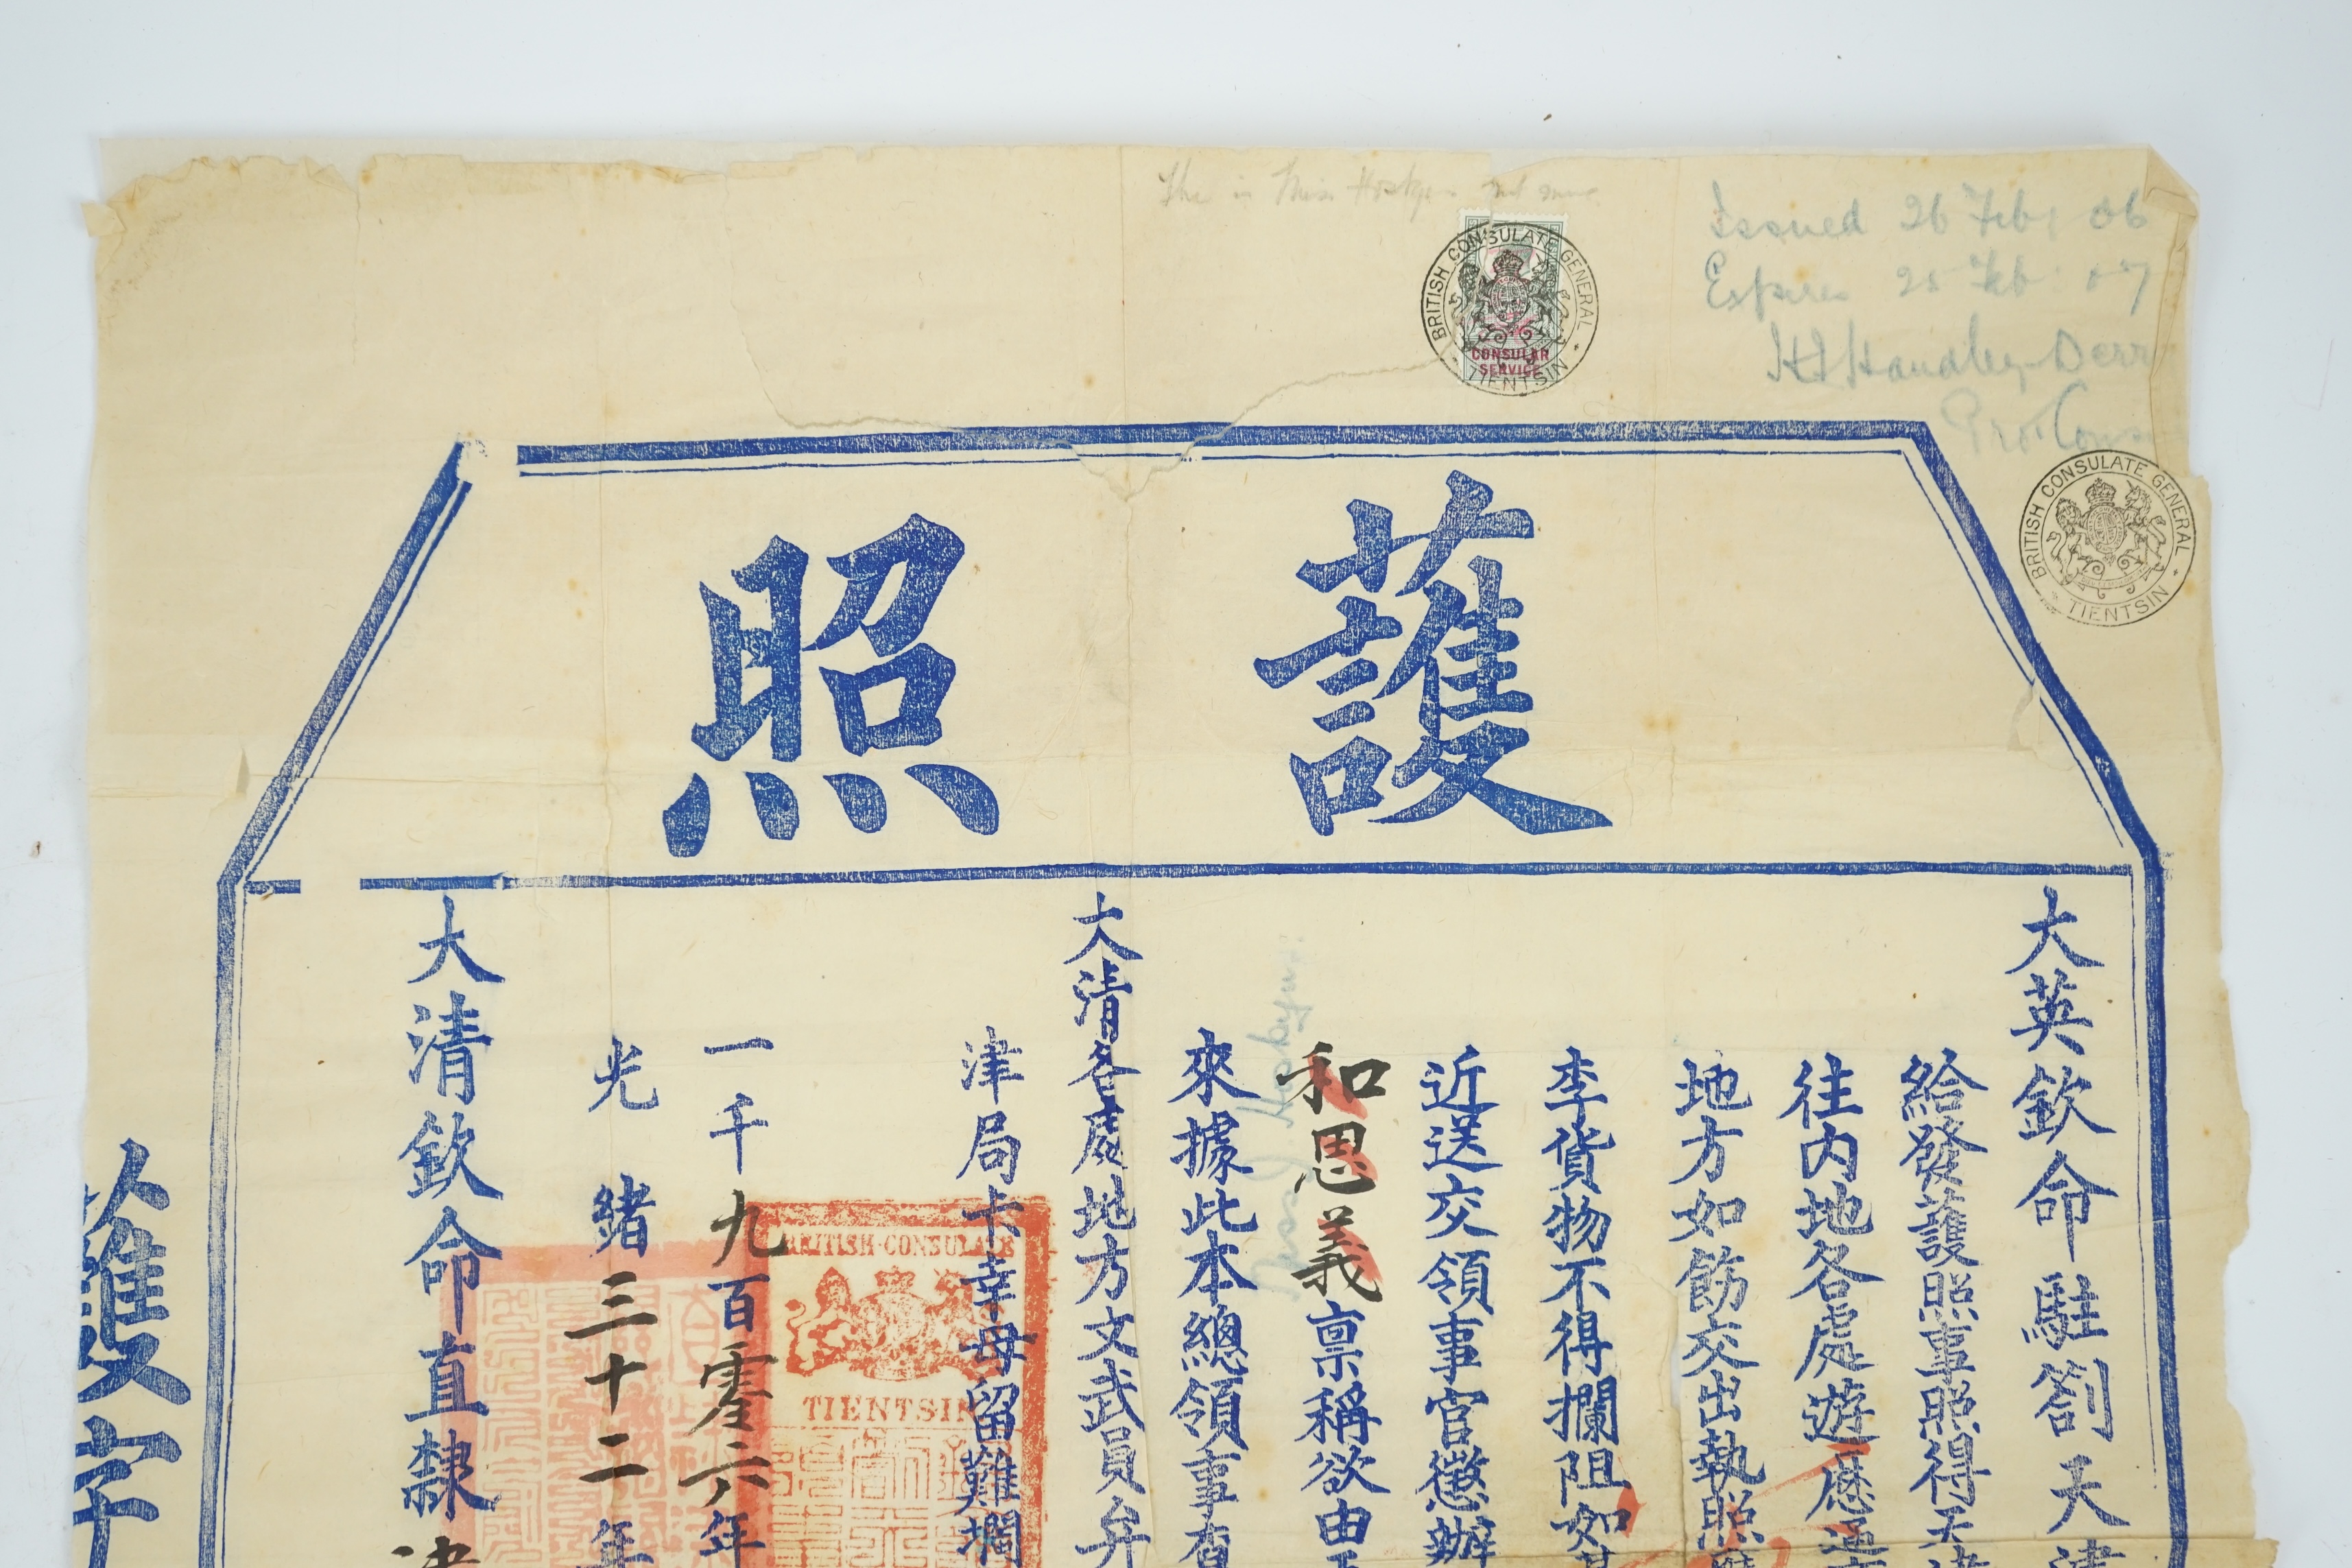 Issued 26 Feb, 06
Expires 25 Feb. 07
H Handley-Derr
Pro. Cons
BRITISH CONSULATE GENERAL
TIENTSIN
CONSULAR
SERVICE
BRITISH CONSULATE GENERAL
TIENTSIN
護照
大英欽命駐劄天津
給發護照事照得天津
往內地各處遊歷通商
地方如飭交出執照應
李貨物不得攔阻如其
近送交領事官懲辦
和思義稟稱欲由
來據此本總領事查
大清各處地方文武員弁
津局卡幸毋留難攔
一千九百零六年
光緒三十二年
大清欽命直隸津
護字
BRITISH·CONSULATE
TIENTSIN